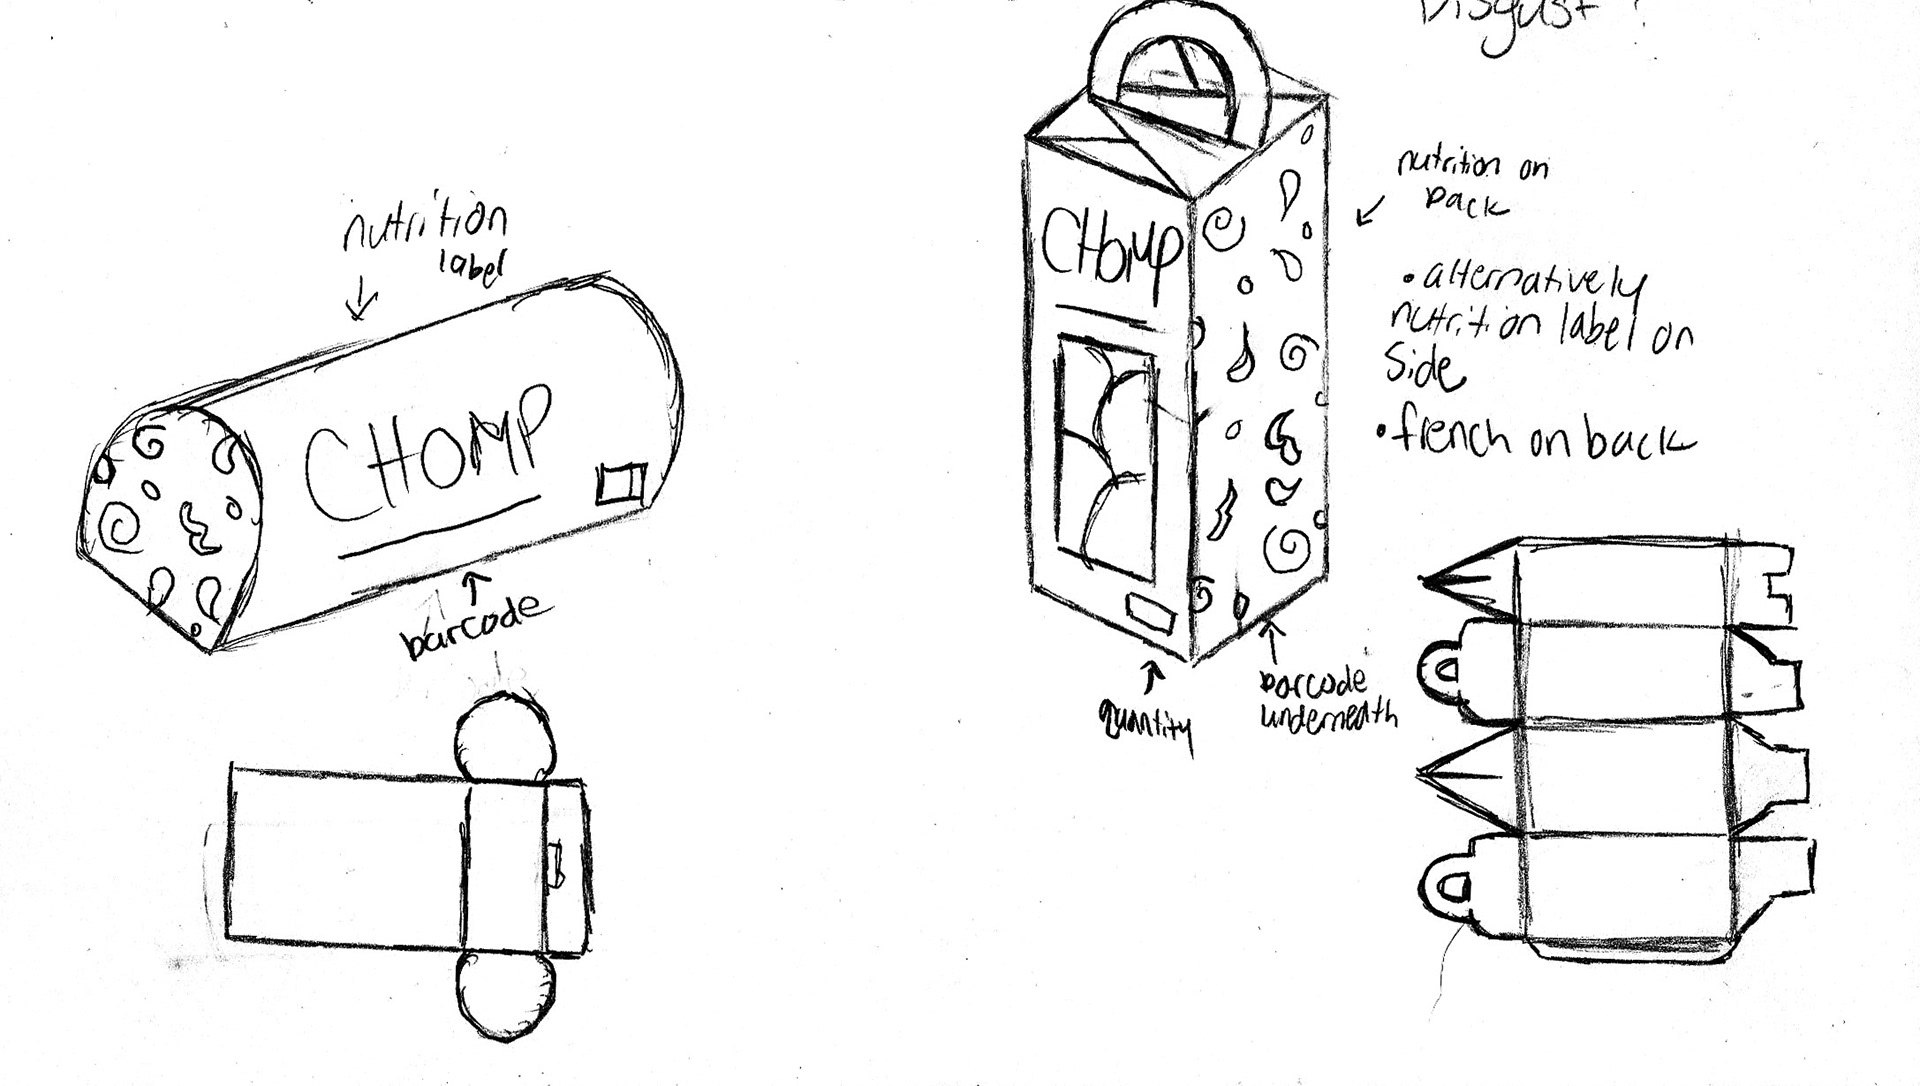 Disgust?
nutrition
label
CHOMP
barcode
CHOMP
nutrition on
back
• alternatively
nutrition label on
side
• french on back
quantity
barcode
underneath